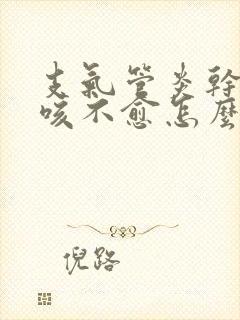 支氣管炎幹
咳不愈怎麼
倪路